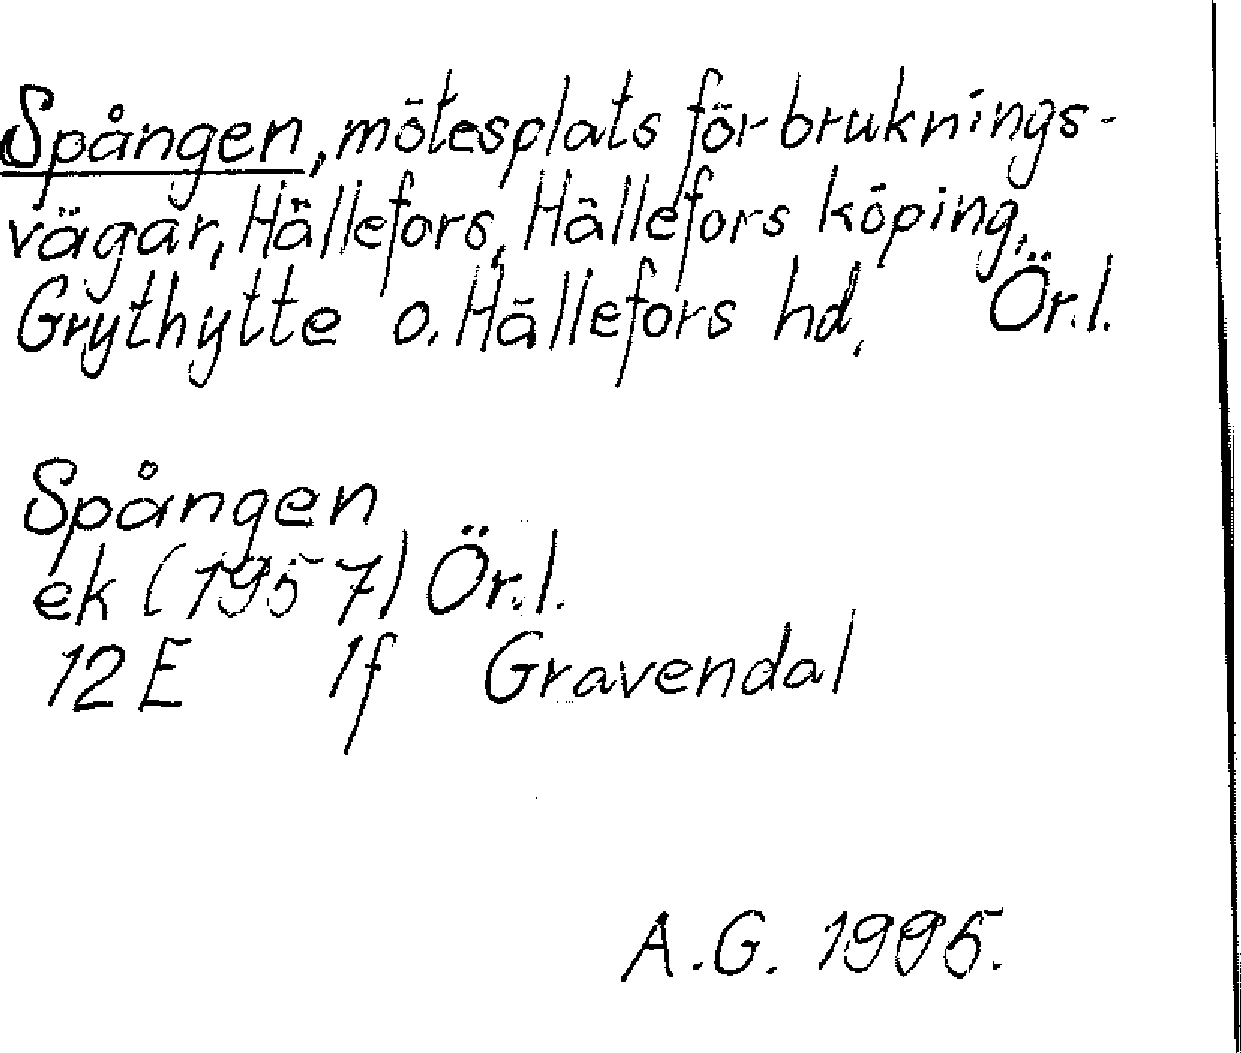 Spången, mötesplats för bruknings-
vägar, Hällefors, Hällefors köping,
Grythytte o. Hällefors hd, Ör.l.
Spången
ek (1957) Ör.l.
12E 1f Gravendal
A.G. 1995.